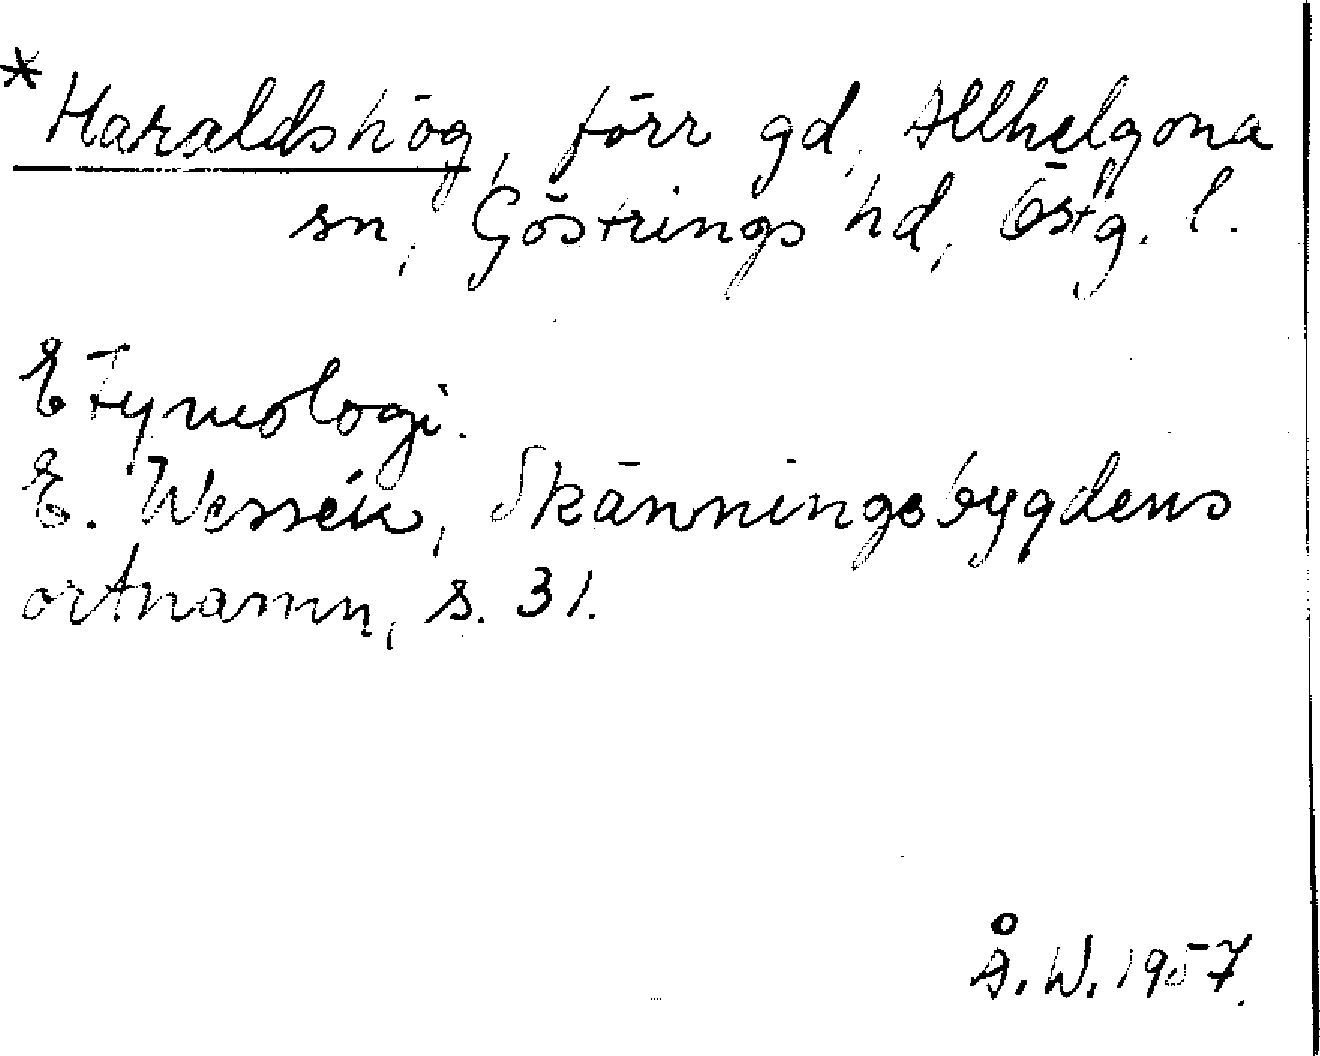 *Haraldshög, förr gd, Allhelgona
sn, Göstrings hd, Östg. l.
Etymologi.
E. Wessén, Skänningebygdens
ortnamn, s. 31.
Å. W. 1957.